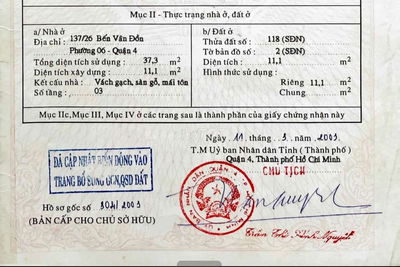 Mục II - Thực trạng nhà ở, đất ở
a/ Nhà ở
Địa chỉ : 137/26 Bến Vân Đồn
Phường 06 - Quận 4
Tổng diện tích sử dụng : 37,3 m2
Diện tích xây dựng : 11,1 m2
Kết cấu nhà : Vách gạch, sàn gỗ, mái tôn
Số tầng : 03
b/ Đất ở
Thửa đất số : 118 (SĐN)
Tờ bản đồ số : 2 (SĐN)
Diện tích : 11,1 m2
Hình thức sử dụng :
Riêng 11,1 m2
Chung m2
Mục IIc, Mục III, Mục IV ở các trang sau là thành phần của giấy chứng nhận này
Ngày 11 tháng 3. 2003
T.M Uỷ ban Nhân dân Tỉnh ( Thành phố )
Quận 4, Thành phố Hồ Chí Minh
CHỦ TỊCH
ĐÃ CẬP NHẬT BIẾN ĐỘNG VÀO
TRANG BỔ SUNG GCN.QSD ĐẤT
Hồ sơ gốc số 3041 2003
(BẢN CẤP CHO CHỦ SỞ HỮU)